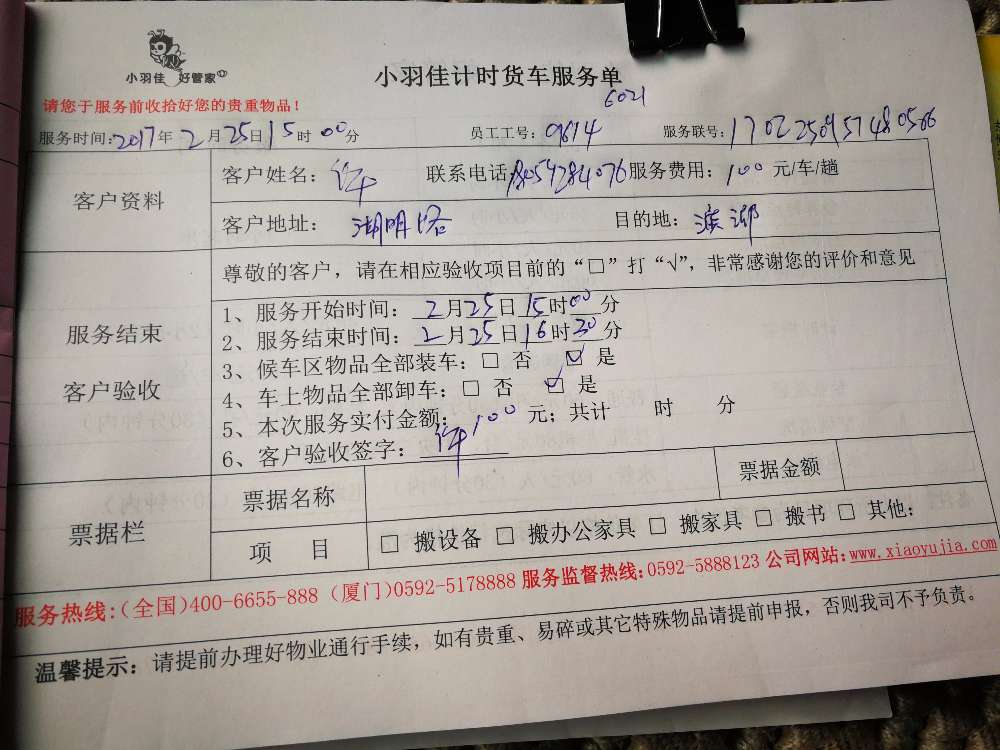 小羽佳 好管家
小羽佳计时货车服务单
6021
请您于服务前收拾好您的贵重物品！
服务时间:2017年 2月25日15时00分 员工工号: 0614 服务联号:
客户资料
客户姓名: 许 联系电话:18054284076 服务费用: 100 元/车/趟
客户地址: 湖明路 目的地:
服务结束
客户验收
尊敬的客户，请在相应验收项目前的“□”打“√”，非常感谢您的评价和意见
1、服务开始时间: 2月25日15时00分
2、服务结束时间: 2月25日16时30分
3、候车区物品全部装车: □ 否 ☑ 是
4、车上物品全部卸车: □ 否 ☑ 是
5、本次服务实付金额: 100 元；共计 时 分
6、客户验收签字: 许
票据栏
票据名称 票据金额
项 目 □ 搬设备 □ 搬办公家具 □ 搬家具 □ 搬书 □ 其他:
服务热线:(全国)400-6655-888 (厦门)0592-5178888 服务监督热线:0592-5888123 公司网站:www.xiaoyujia.com
温馨提示: 请提前办理好物业通行手续，如有贵重、易碎或其它特殊物品请提前申报，否则我司不予负责。